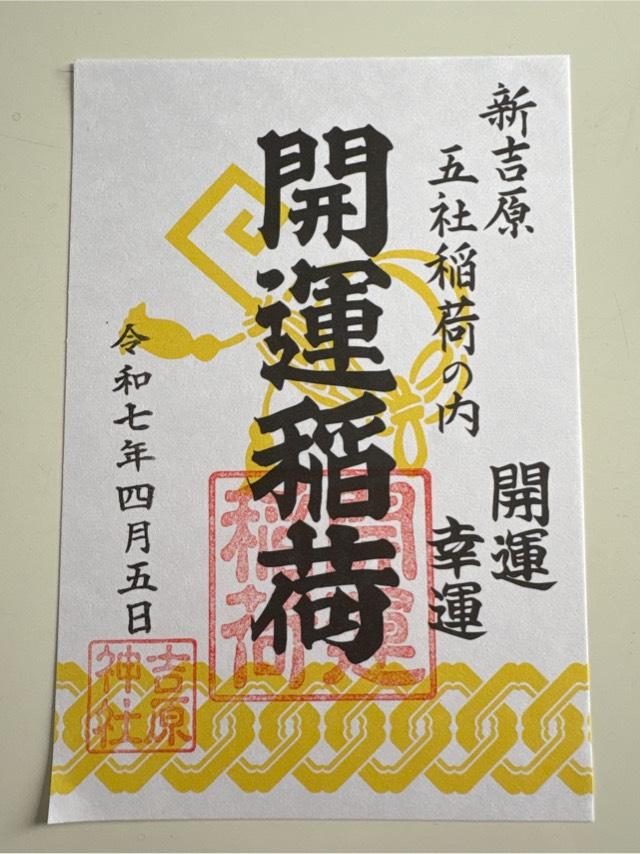 新吉原
五社稲荷の内
開運
幸運
開運稲荷
開運
稲荷
令和七年四月五日
吉原
神社